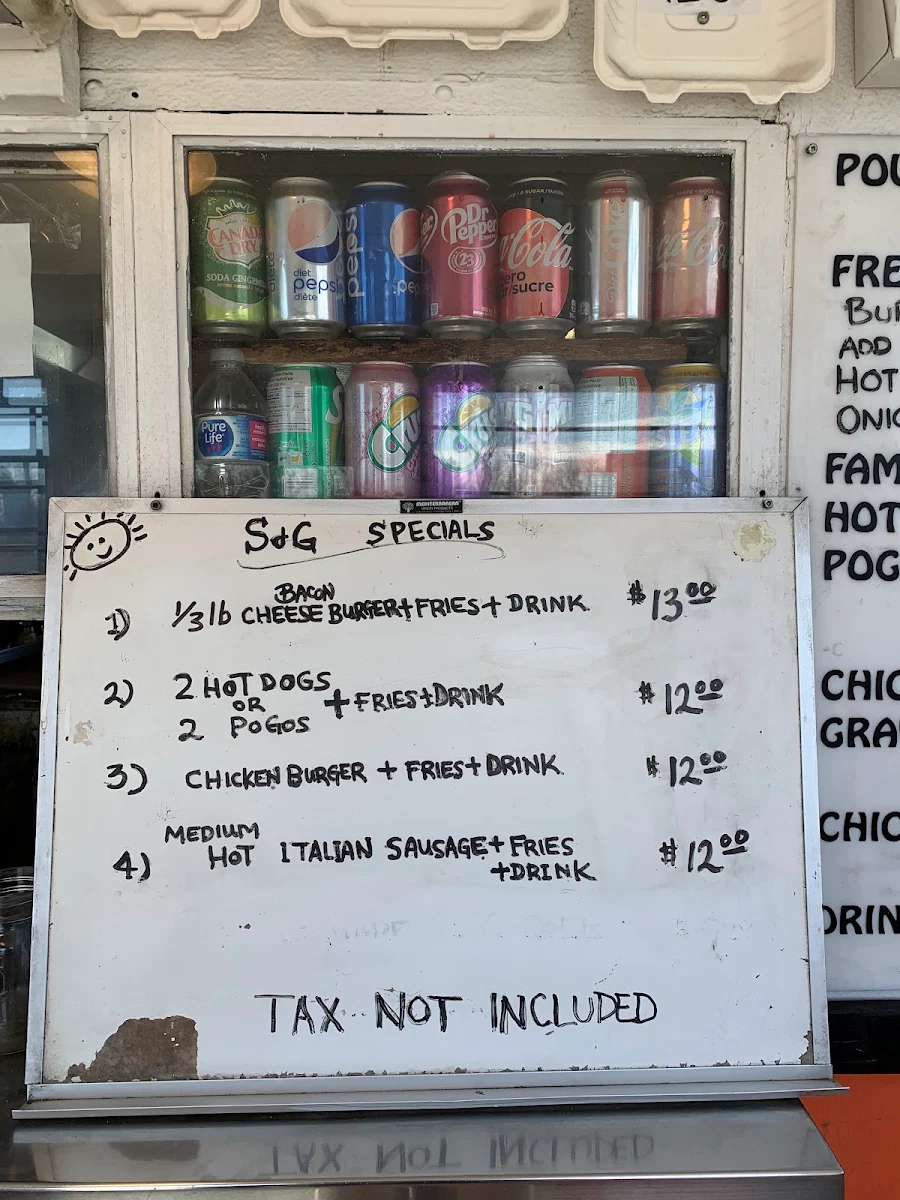 CANADA DRY
SODA GINGEMBRE
diet
pepsi
diète
PEPSI
pepsi
Dr Pepper
23
Coca-Cola
zero
sucre
Coke
Coca-Cola
Pure Life
Crush
Crush
POU
FRE
BUR
ADD
HOT
ONIO
FAM
HOT
POG
CHIC
GRA
CHIC
DRIN
MEDITERRANEAN
S&G SPECIALS
1) 1/3 lb BACON
CHEESE BURGER + FRIES + DRINK $13.00
2) 2 HOT DOGS
OR
2 POGOS
+ FRIES + DRINK $12.00
3) CHICKEN BURGER + FRIES + DRINK $12.00
4) MEDIUM
HOT ITALIAN SAUSAGE + FRIES
+ DRINK $12.00
TAX NOT INCLUDED